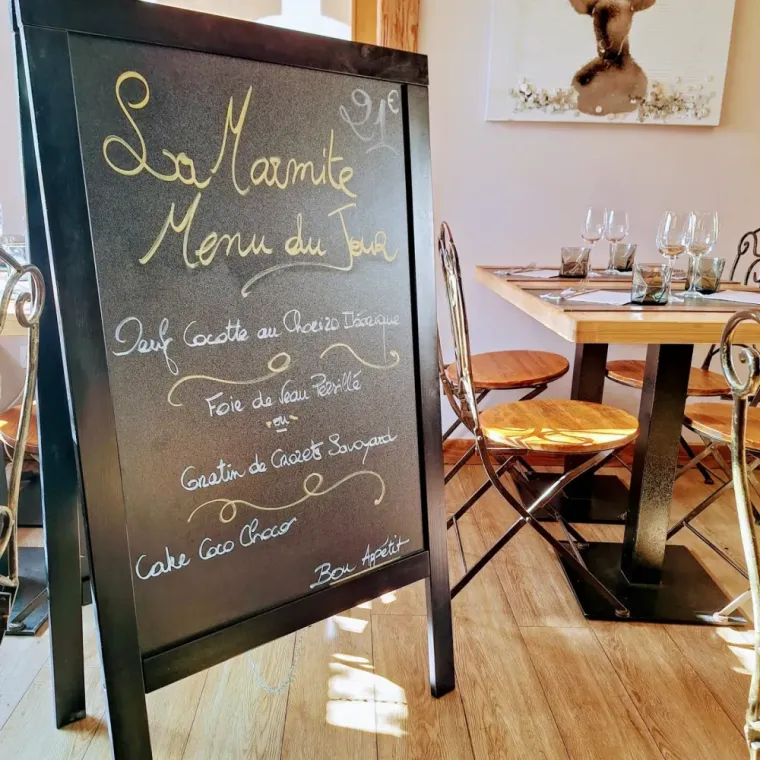 La Marmite
21€
Menu du Jour
Oeuf Cocotte au Chorizo Ibérique
Foie de Veau Persillé
ou
Gratin de Crozets Savoyard
Cake Coco Choco
Bon Appétit